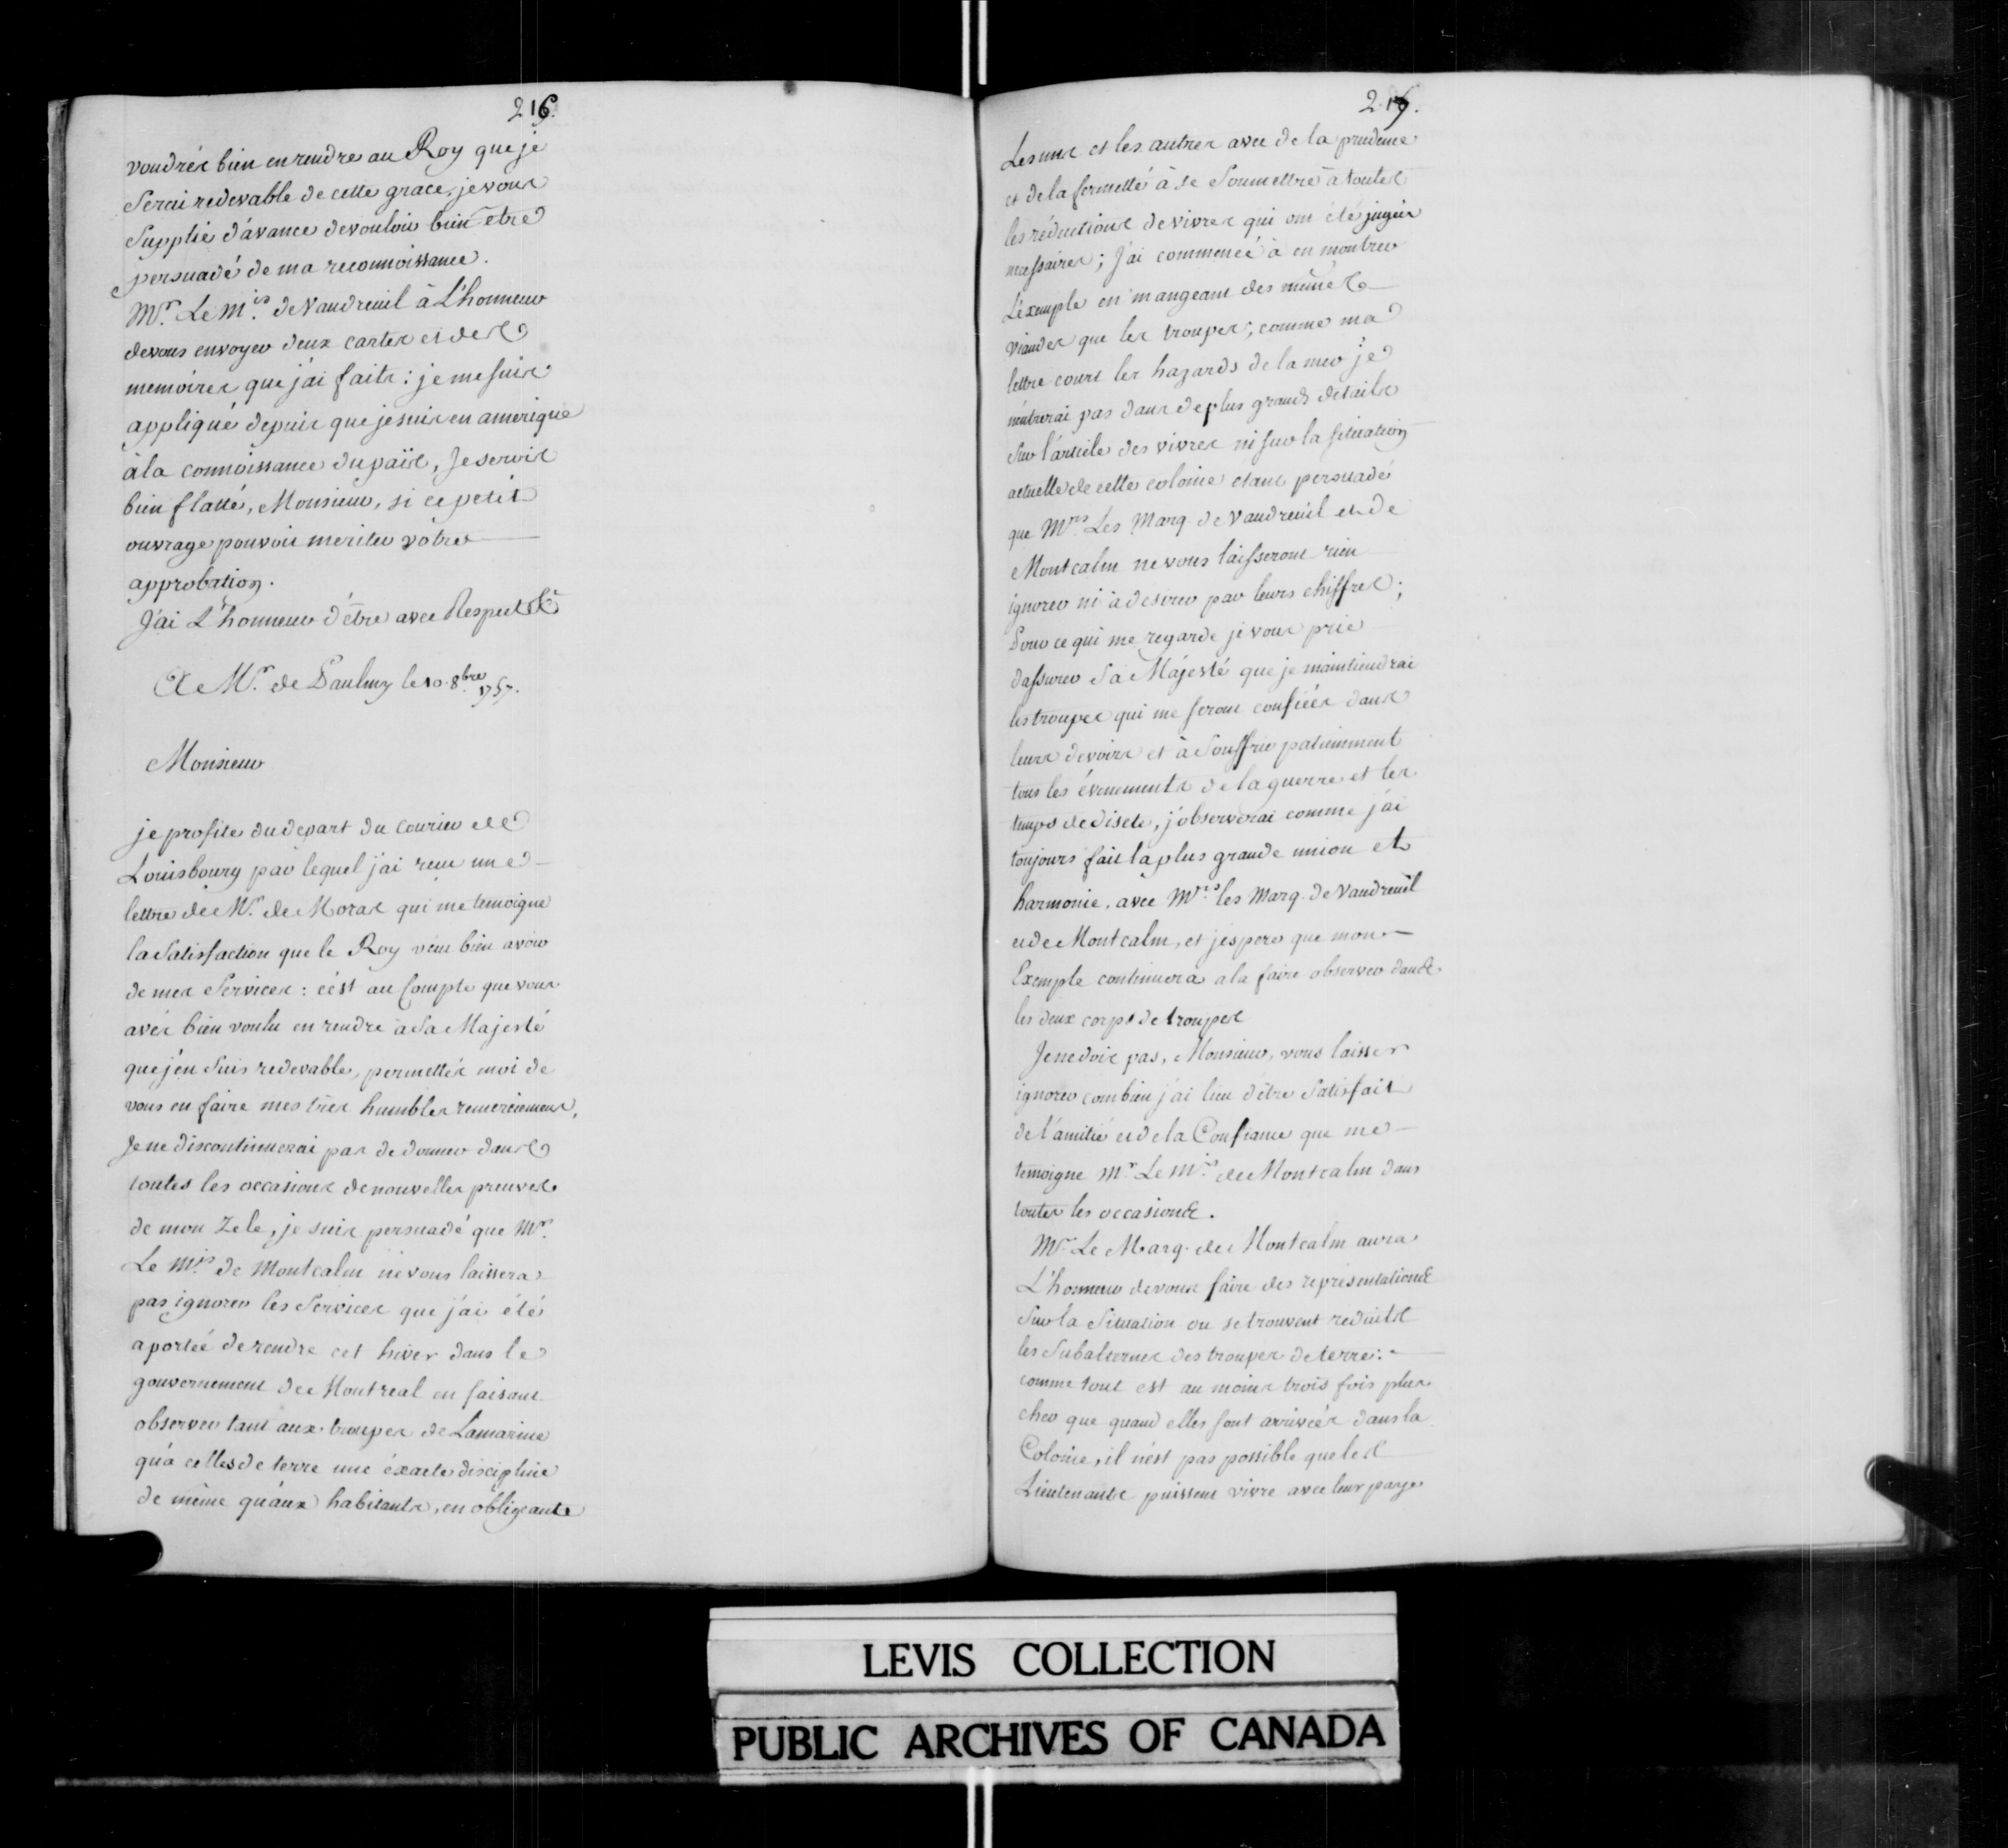 216.
voudrés bien en rendre au Roy que je
Serai redevable de cette grace, je vous
Supplie d'avance de vouloir bien être
persuadé de ma reconnoissance.
Mr. Le Mis. de Vaudreuil à L'honneur
de vous envoyer deux cartes et des
memoires que j'ai faits : je me suis
appliqué depuis que je suis en amerique
à la connoissance du païs, Je serois
bien flatté, Monsieur, si ce petit
ouvrage pouvoit meriter vôtre
approbation.
J'ai L'honneur d'être avec Respect &c
A Mr. de Paulmy le 10. 8bre 1757.
Monsieur
je profite du depart du courier de
Louisbourg par lequel j'ai reçu une
lettre de Mr. de Moras qui me temoigne
la Satisfaction que le Roy veut bien avoir
de mes Services : c'est au Compte que vous
avés bien voulu en rendre à Sa Majesté
que j'en suis redevable, permettés moi de
vous en faire mes très humbles remerciemens,
Je ne discontinuerai pas de donner dans
toutes les occasions de nouvelles preuves
de mon Zele, je suis persuadé que Mr.
Le Mis. de Montcalm ne vous laissera
pas ignorer les Services que j'ai été
a portée de rendre cet hiver dans le
gouvernement de Montreal en faisant
observer tant aux troupes de Lamarine
qu'a celles de terre une éxacte discipline
de même qu'aux habitants, en obligeant
217.
Les uns et les autres avec de la prudence
et de la fermetté à se Soumettre à toutes
les réductions de vivres qui ont été jugées
necessaires ; J'ai commencé à en montrer
L'éxemple en mangeant des mêmes
viandes que les troupes ; comme ma
lettre court les hazards de la mer je
n'entrerai pas dans de plus grands details
Sur l'article des vivres ni sur la situation
actuelle de cette colonie etant persuadé
que Mrs. Les Marq. de Vaudreuil et de
Montcalm ne vous laisseront rien
ignorer ni à desirer par leurs chiffres ;
Pour ce qui me regarde je vous prie
d'assurer Sa Majesté que je maintiendrai
les troupes qui me seront confiées dans
leurs devoirs et à Souffrir patiemment
tous les évenements de la guerre et les
temps de disete, j'observerai comme j'ai
toujours fait la plus grande union et
harmonie, avec Mrs. les Marq. de Vaudreuil
et de Montcalm, et j'espere que mon
Exemple continuera a la faire observer dans
les deux corps de troupes
Je ne dois pas, Monsieur, vous laisser
ignorer combien j'ai lieu d'être Satisfait
de l'amitié et de la Confiance que me
temoigne Mr. Le Mis. de Montcalm dans
toutes les occasions.
Mr. Le Marq. de Montcalm aura
L'honneur de vous faire des representations
Sur la Situation ou se trouvent reduits
les Subalternes des troupes de terre :
comme tout est au moins trois fois plus
cher que quand elles sont arrivées dans la
Colonie, il n'est pas possible que les
Lieutenants puissent vivre avec leur paye
LEVIS COLLECTION
PUBLIC ARCHIVES OF CANADA